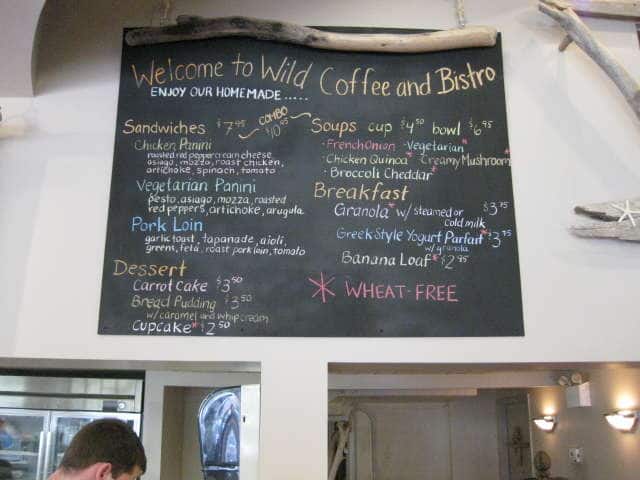 Welcome to Wild Coffee and Bistro
ENJOY OUR HOMEMADE.....
Sandwiches $7.95
COMBO
$10.95
Chicken Panini
roasted red pepper cream cheese
asiago, mozza, roast chicken,
artichoke, spinach, tomato
Vegetarian Panini
pesto, asiago, mozza, roasted
red peppers, artichoke, arugula
Pork Loin
garlic toast, tapanade, aioli,
greens, feta, roast pork loin, tomato
Dessert
Carrot Cake $3.50
Bread Pudding $3.50
w/ caramel and whip cream
Cupcake* $2.50
Soups cup $4.50 bowl $6.95
· French Onion · Vegetarian*
· Chicken Quinoa* · Creamy Mushroom*
· Broccoli Cheddar*
Breakfast
Granola* w/ steamed or
cold milk $3.75
Greek Style Yogurt Parfait* $3.75
w/ granola
Banana Loaf* $2.95
* WHEAT-FREE